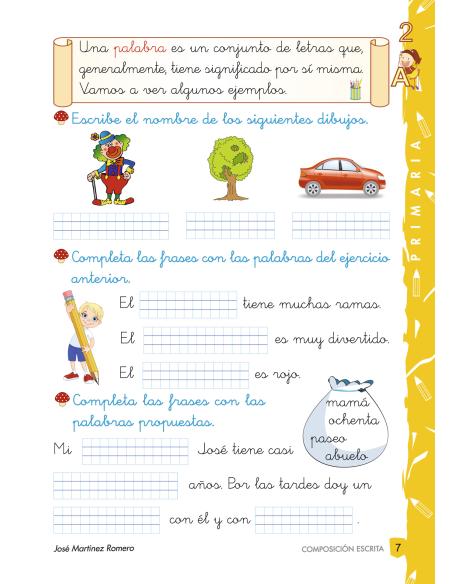 2
A
PRIMARIA
Una palabra es un conjunto de letras que,
generalmente, tiene significado por sí misma.
Vamos a ver algunos ejemplos.
Escribe el nombre de los siguientes dibujos.
Completa las frases con las palabras del ejercicio
anterior.
El tiene muchas ramas.
El es muy divertido.
El es rojo.
Completa las frases con las
palabras propuestas.
mamá
ochenta
paseo
abuelo
Mi José tiene casi
años. Por las tardes doy un
con él y con .
José Martínez Romero
COMPOSICIÓN ESCRITA
7